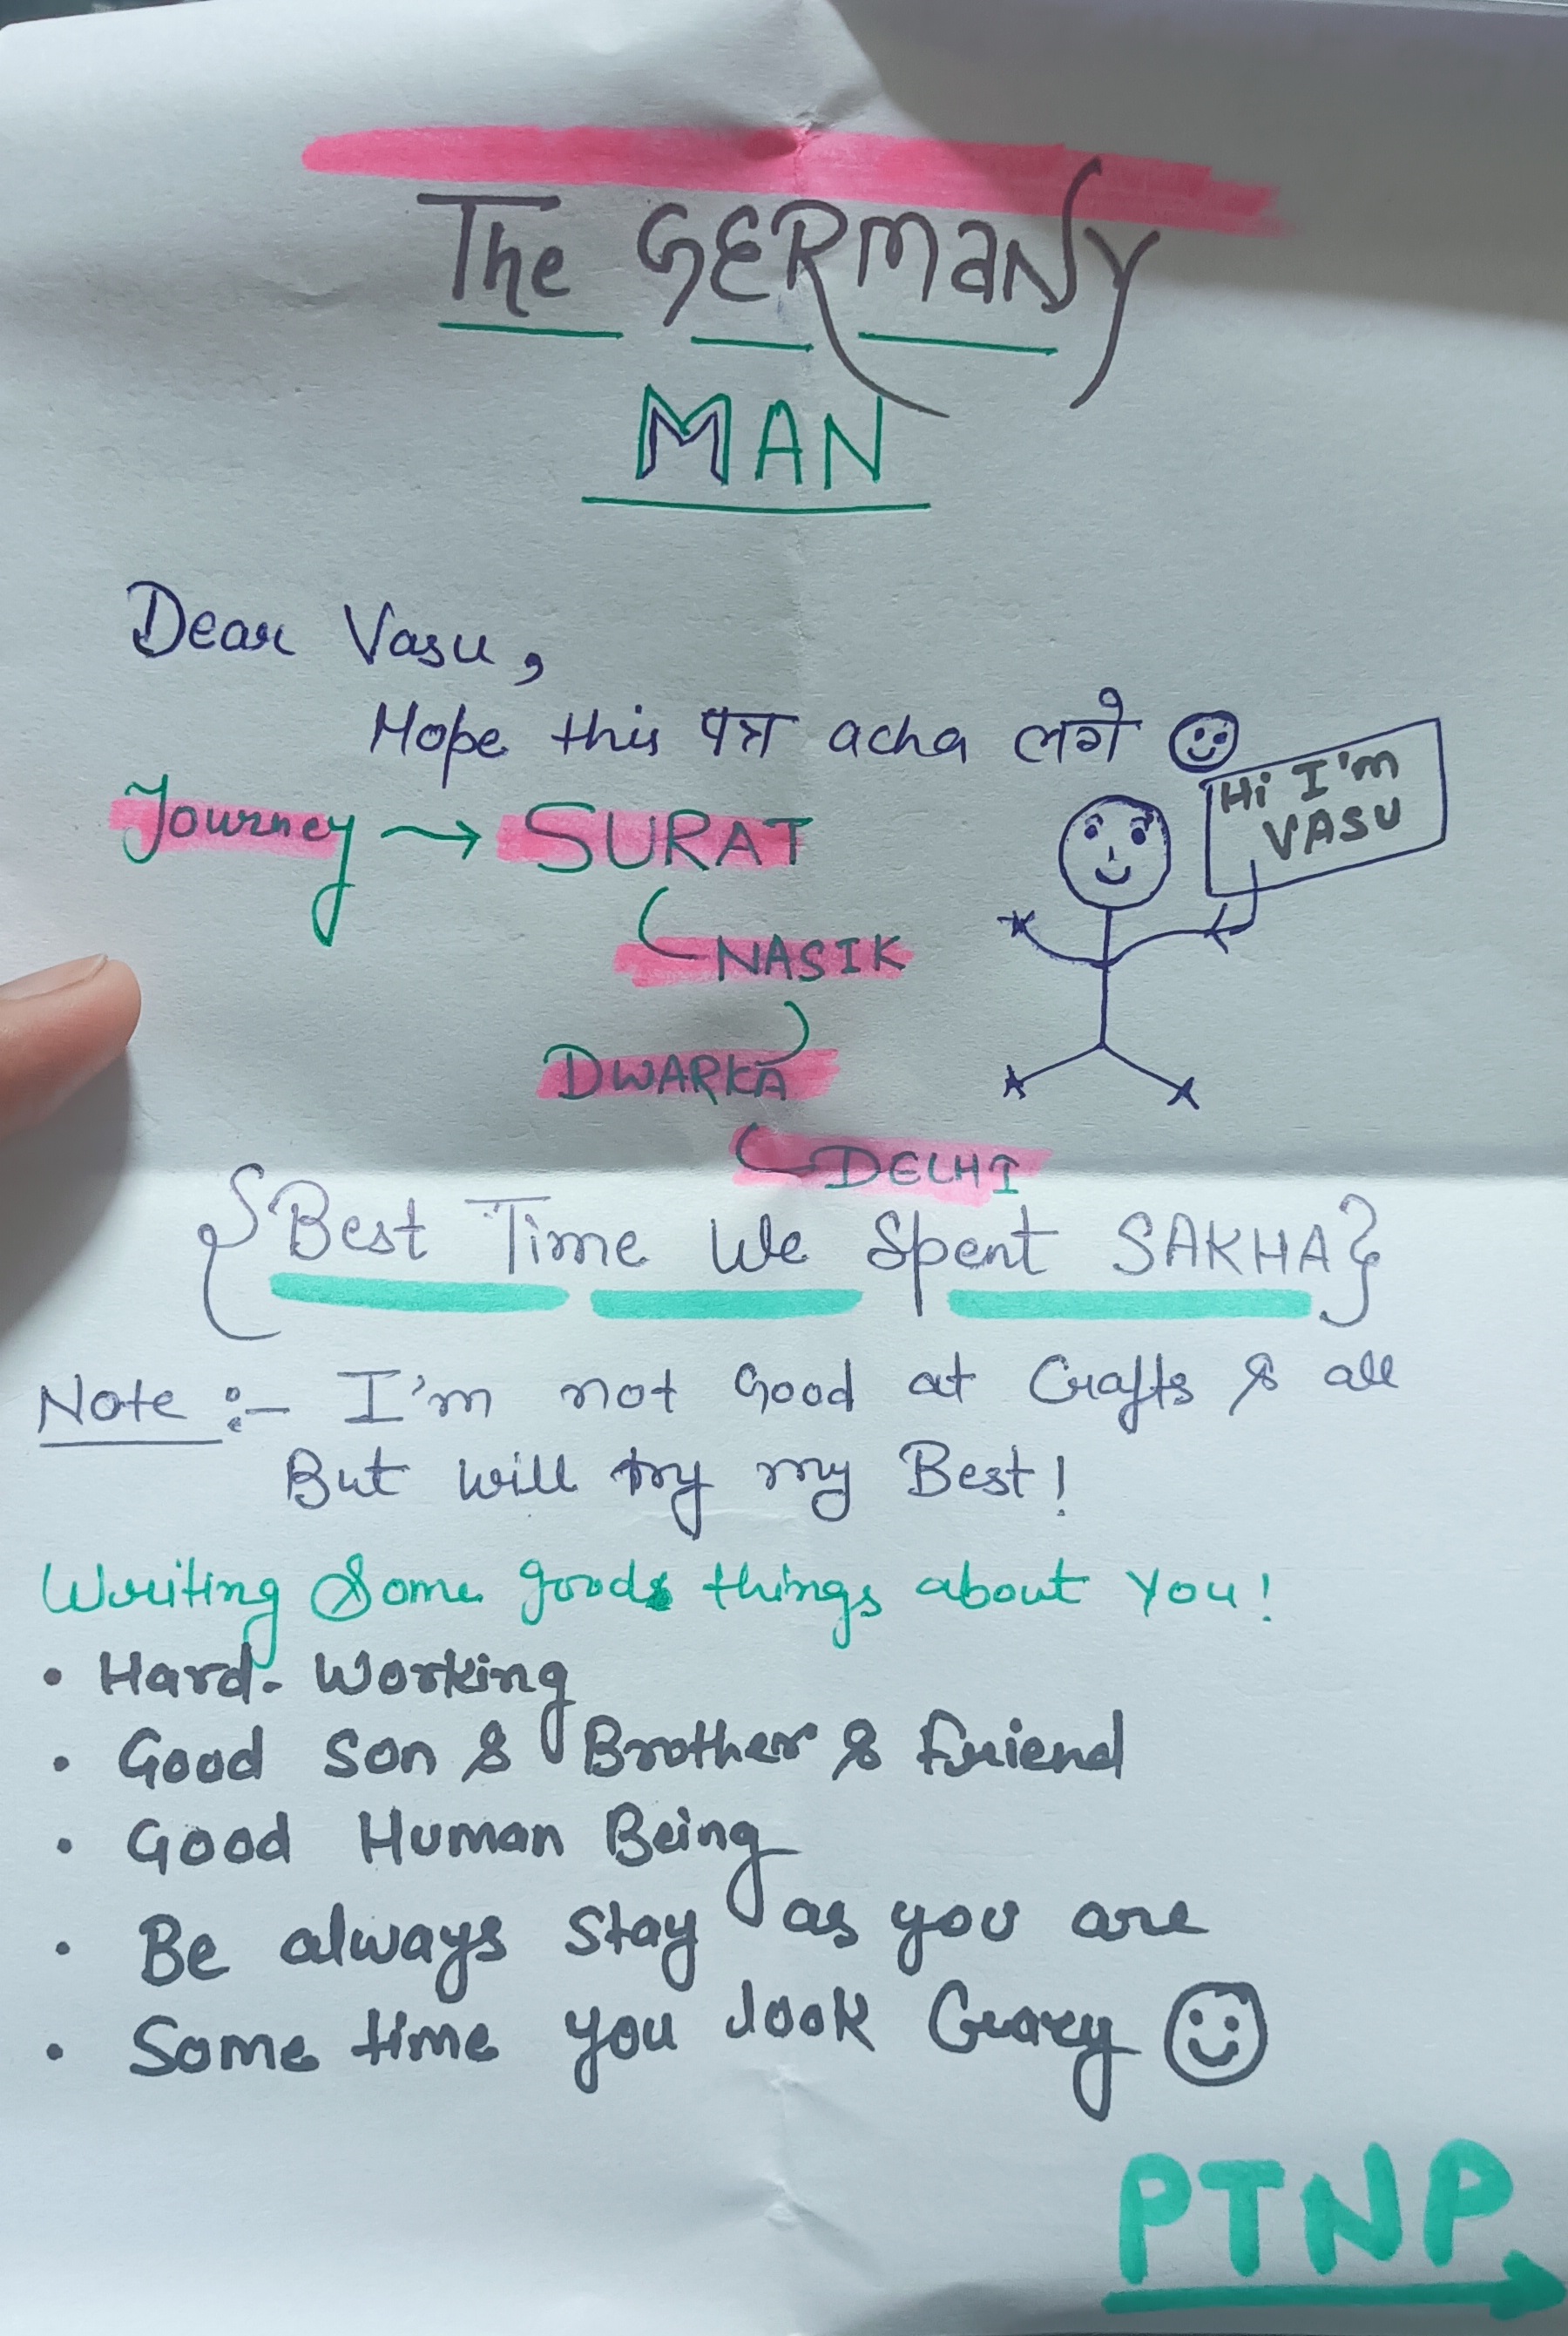 The GERMANY
MAN
Dear Vasu,
Hope this पत्र acha लगे
Hi I'm
VASU
Journey → SURAT
NASIK
DWARKA
DELHI
{Best Time We Spent SAKHA}
Note :- I'm not Good at Crafts & all
But will try my Best!
Writing Some goods things about You!
• Hard-Working
• Good Son & Brother & Friend
• Good Human Being
• Be always stay as you are
• Some time you look Crazy
PTNP